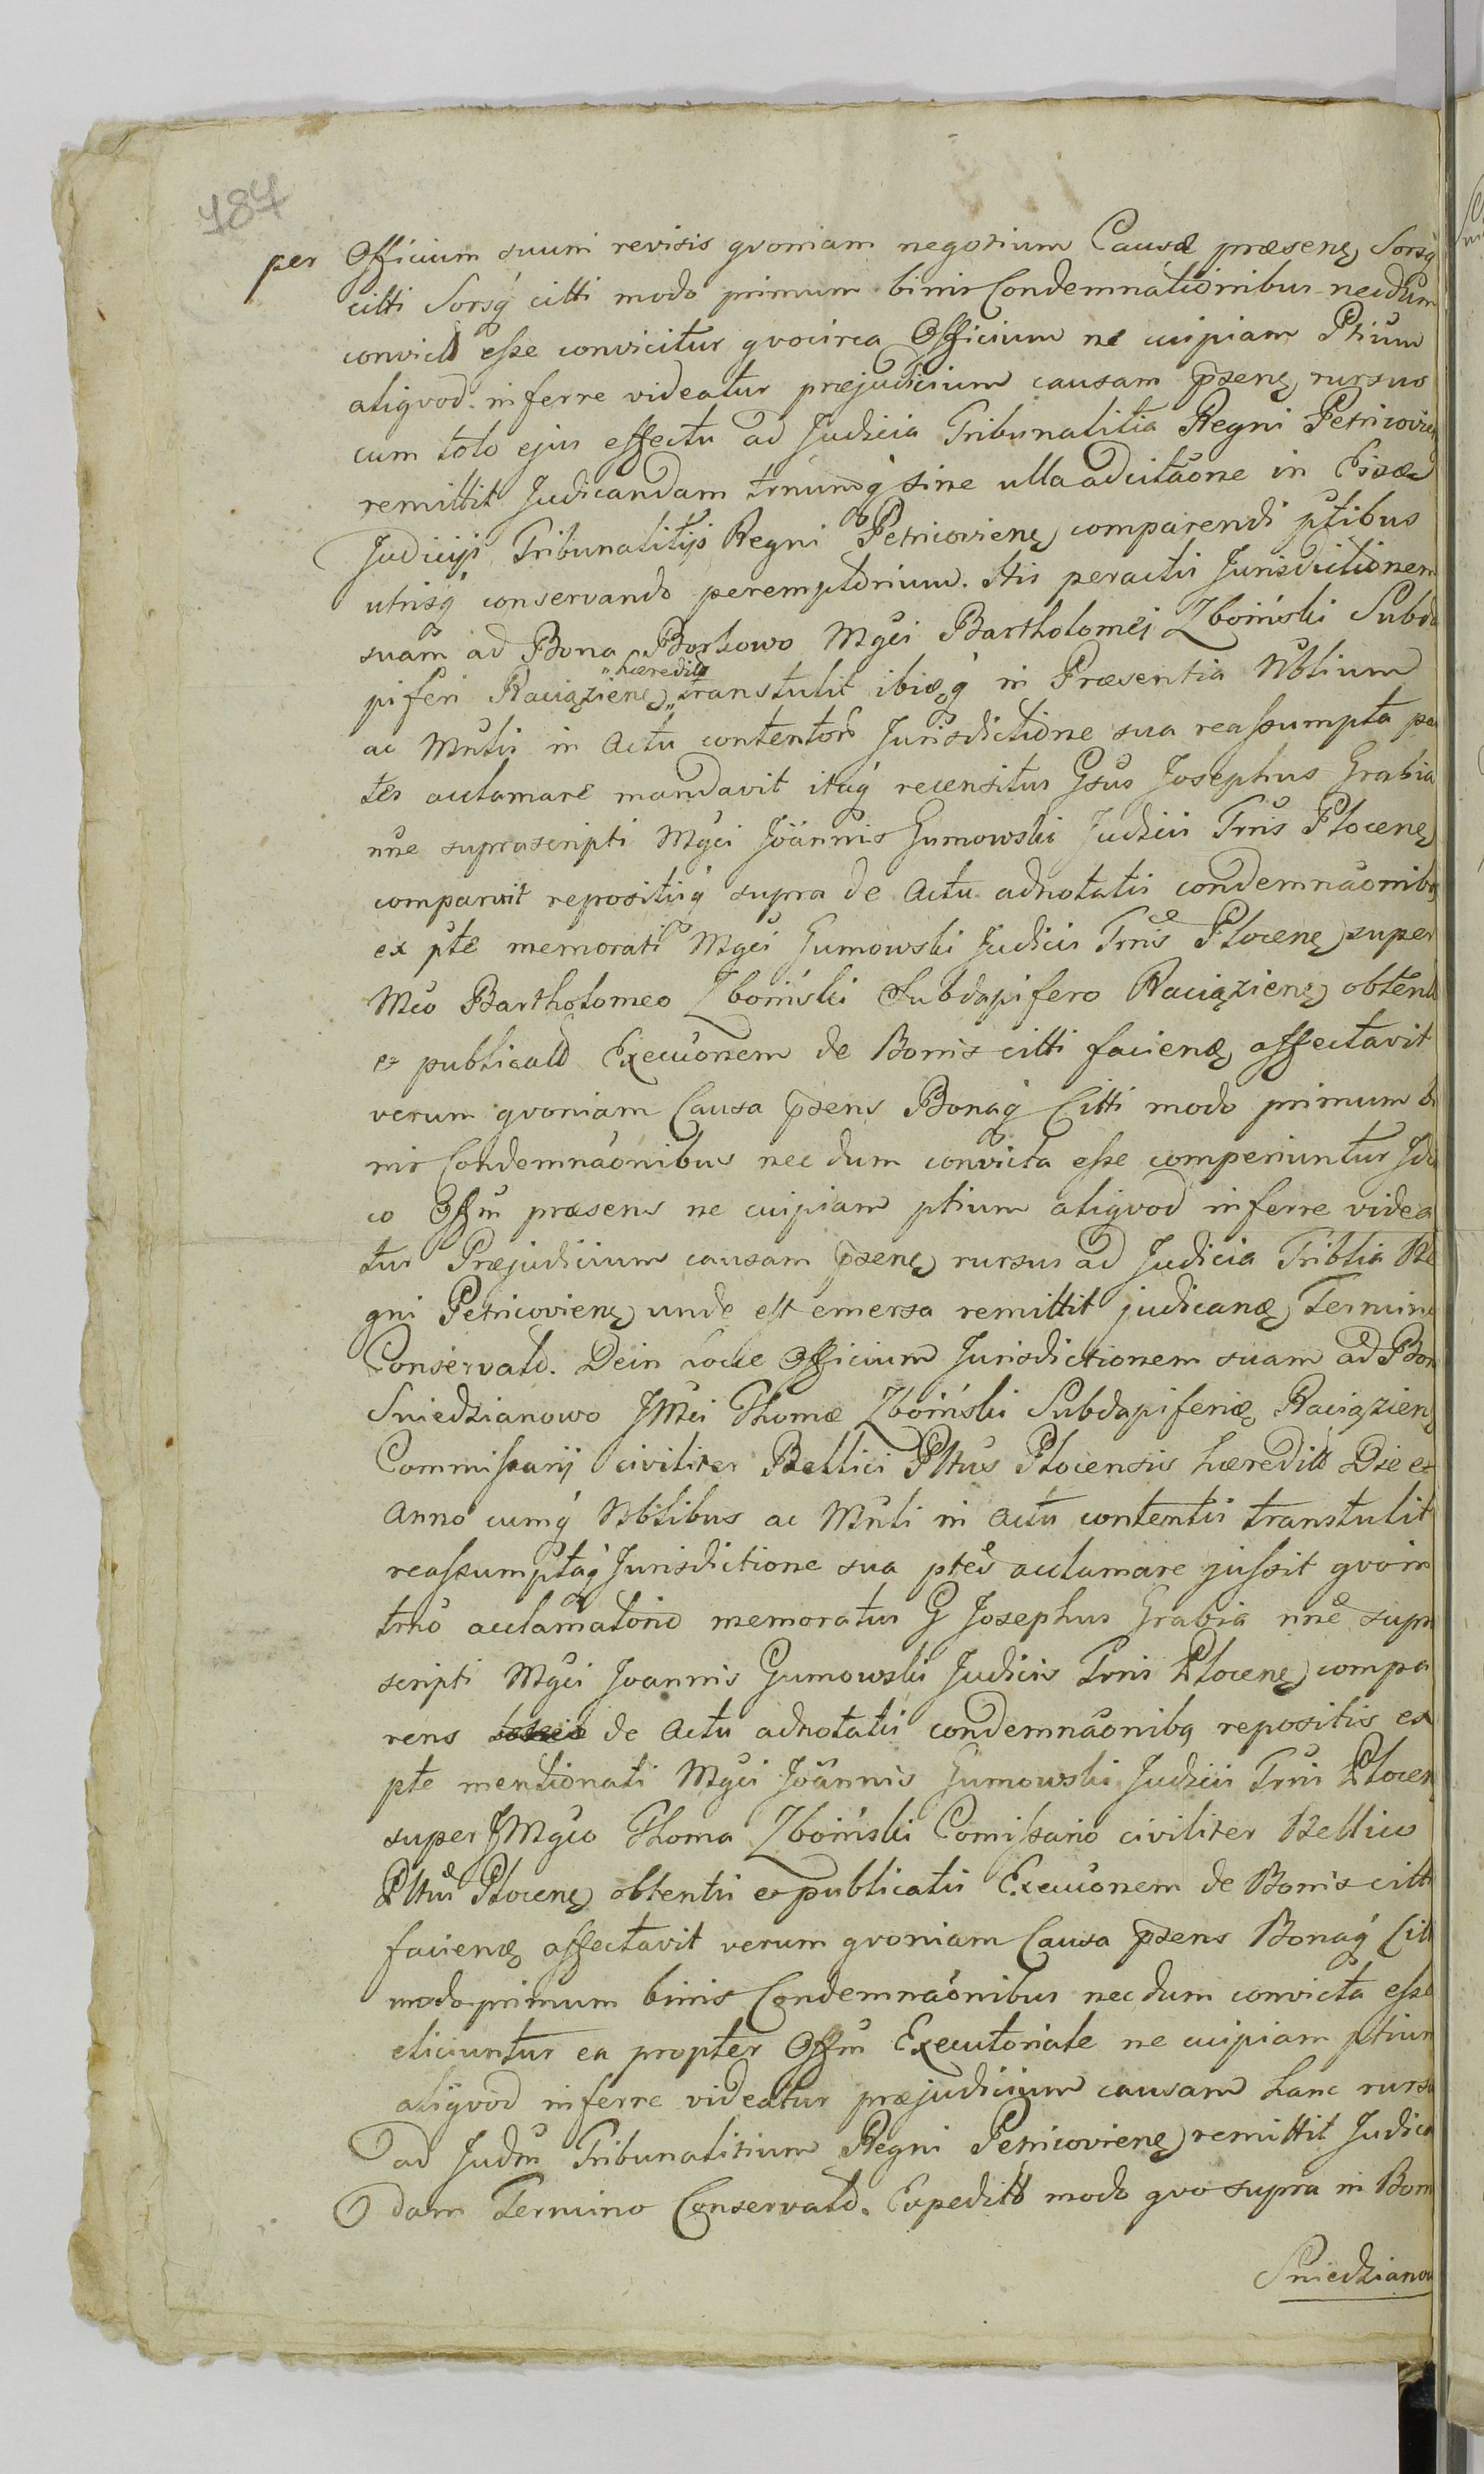 187
per Officium suum revisis qvoniam negotium Causæ præsenę Sorsq́
citti Sorsq́ citti modo primum binis Condemnationibus necdum
convictū esse convicitur qvocirca Officium ne cuipiam Ptium
aliqvod inferre videatur præjudicium causam p̄senę rursus
cum toto ejus effectu ad Judicia Tribunalitia Regni Petricovien
remittit Judicandam trnumq́ sine ulla adcitaōne in
Judicijs Tribunalitijs Regni Petricovienę comparendi ptibus
utrisq́ conservando peremptorium. His peractis Jurisdictionem
suam ad Bona Borkowo Mgci Bartholomei Zboiński Subda
"hæredit
piferi Raciązienę „transtulit ibiq́ in Præsentia Nblium
ac Mnlis in Actu contentor Jurisdictione sua reassumpta pa
tes acclamare mandavit itaq́ recensitus Gsus Josephus Grabia
nne suprascripti Mgci Joannis Gumowski Judicis Trris Plocenę
comparuit repositisq́ supra de Actu adnotatis condemnaōnibq
ex pte memorati Mgci Gumowski Judicis Trris Plocenę super
Mco Bartholomeo Zboiński Subdapifero Raciązienę obtent
et publicatis Execuōnem de Bonis citti facienę affectavit
verum qvoniam Causa p̄sens Bonaq́ Citti modo primum bi
nis Condemnaōnibus nec dum convicta esse comperiuntur Idc
co Offm præsens ne cuipiam ptium aliqvod inferre videa
tur Præjudicium causam p̄senę rursus ad Judicia Triblia Re
gni Petricovienę unde est emersa remittit judicanę Termino
Conservato. Dein idem Officium Jurisdictionem suam ad Bon
Sniedzianowo JMci Thomæ Zboiński Subdapiferię Raciązienę
Commissarij civiliter Bellici Pltus Plocensis hæredit Die et
Anno cumq́ Nblibus ac Mnli in Actu contentis transtulit
reassumptaq́ Jurisdictione sua ptes acclamare jussit qvoin
trno acclamatorio memoratus G Josephus Grabia nne supra
scripti Mgci Joannis Gumowski Judicis Trris Plocenę compa
rens de Actu adnotatis condemnaōnibq repositis ex
pte mentionati Mgci Joannis Gumowski Judicis Trris Plocen
super JMgco Thoma Zboiński Comissario civiliter Bellico
Pltus Plocenę obtentis et publicatis Execuōnem de Bonis citti
facienę affectavit verum qvoniam Causa p̄sens Bonaq́ Citt
modo primum binis Condemnaōnibus necdum convicta esse
eliciuntur ea propter Offm Executoriale ne cuipiam ptium
aliqvod inferre videatur præjudicium causam hanc rursu
ad Judm Tribunalitium Regni Petricovienę remittit Judica
dam Termino Conservato. Expedito modo qvo supra in Bon
Sniedzianow